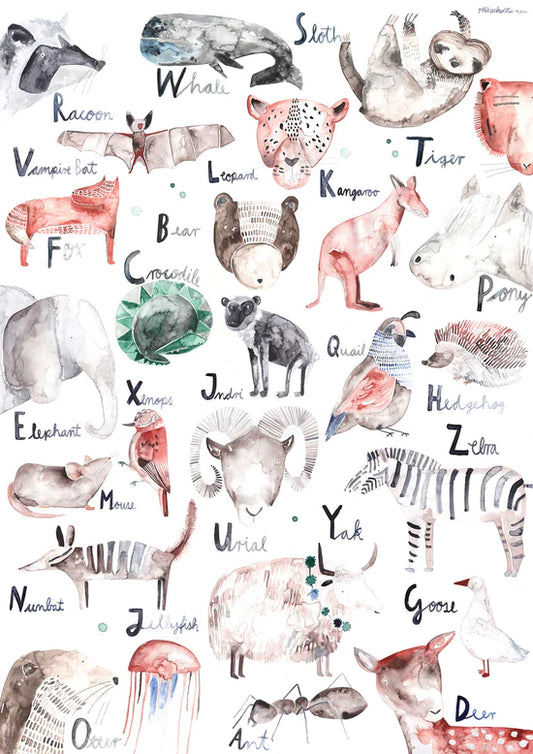 Sloth
Whale
Racoon
Tiger
Vampire Bat
Leopard
Kangaroo
Fox
Bear
Crocodile
Pony
Quail
Xenops
Indri
Hedgehog
Elephant
Zebra
Mouse
Urial
Yak
Numbat
Jellyfish
Goose
Otter
Ant
Deer